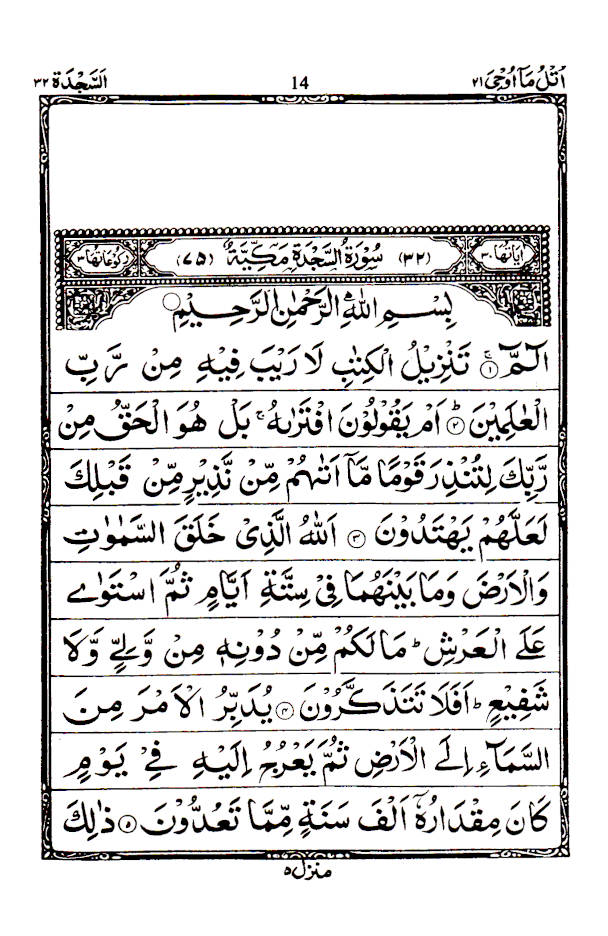 اُتْلُ مَآ اُوْحِیَ ۲۱
14
اَلسَّجْدَة ۳۲
اٰیَاتُهَا ۳۰
(۳۲) سُوْرَةُ السَّجْدَةِ مَكِّیَّةٌ (۷۵)
رُكُوْعَاتُهَا ۳
بِسْمِ اللّٰهِ الرَّحْمٰنِ الرَّحِیْمِ
الٓمّٓ ۚ﴿۱﴾ تَنْزِیْلُ الْكِتٰبِ لَا رَیْبَ فِیْهِ مِنْ رَّبِّ
الْعٰلَمِیْنَ ؕ﴿۲﴾ اَمْ یَقُوْلُوْنَ افْتَرٰىهُ ۚ بَلْ هُوَ الْحَقُّ مِنْ
رَّبِّكَ لِتُنْذِرَ قَوْمًا مَّاۤ اَتٰىهُمْ مِّنْ نَّذِیْرٍ مِّنْ قَبْلِكَ
لَعَلَّهُمْ یَهْتَدُوْنَ ﴿۳﴾ اَللّٰهُ الَّذِیْ خَلَقَ السَّمٰوٰتِ
وَالْاَرْضَ وَمَا بَیْنَهُمَا فِیْ سِتَّةِ اَیَّامٍ ثُمَّ اسْتَوٰی
عَلَی الْعَرْشِ ؕ مَا لَكُمْ مِّنْ دُوْنِهٖ مِنْ وَّلِیٍّ وَّلَا
شَفِیْعٍ ؕ اَفَلَا تَتَذَكَّرُوْنَ ﴿۴﴾ یُدَبِّرُ الْاَمْرَ مِنَ
السَّمَآءِ اِلَی الْاَرْضِ ثُمَّ یَعْرُجُ اِلَیْهِ فِیْ یَوْمٍ
كَانَ مِقْدَارُهٗۤ اَلْفَ سَنَةٍ مِّمَّا تَعُدُّوْنَ ﴿۵﴾ ذٰلِكَ
منزل ۵